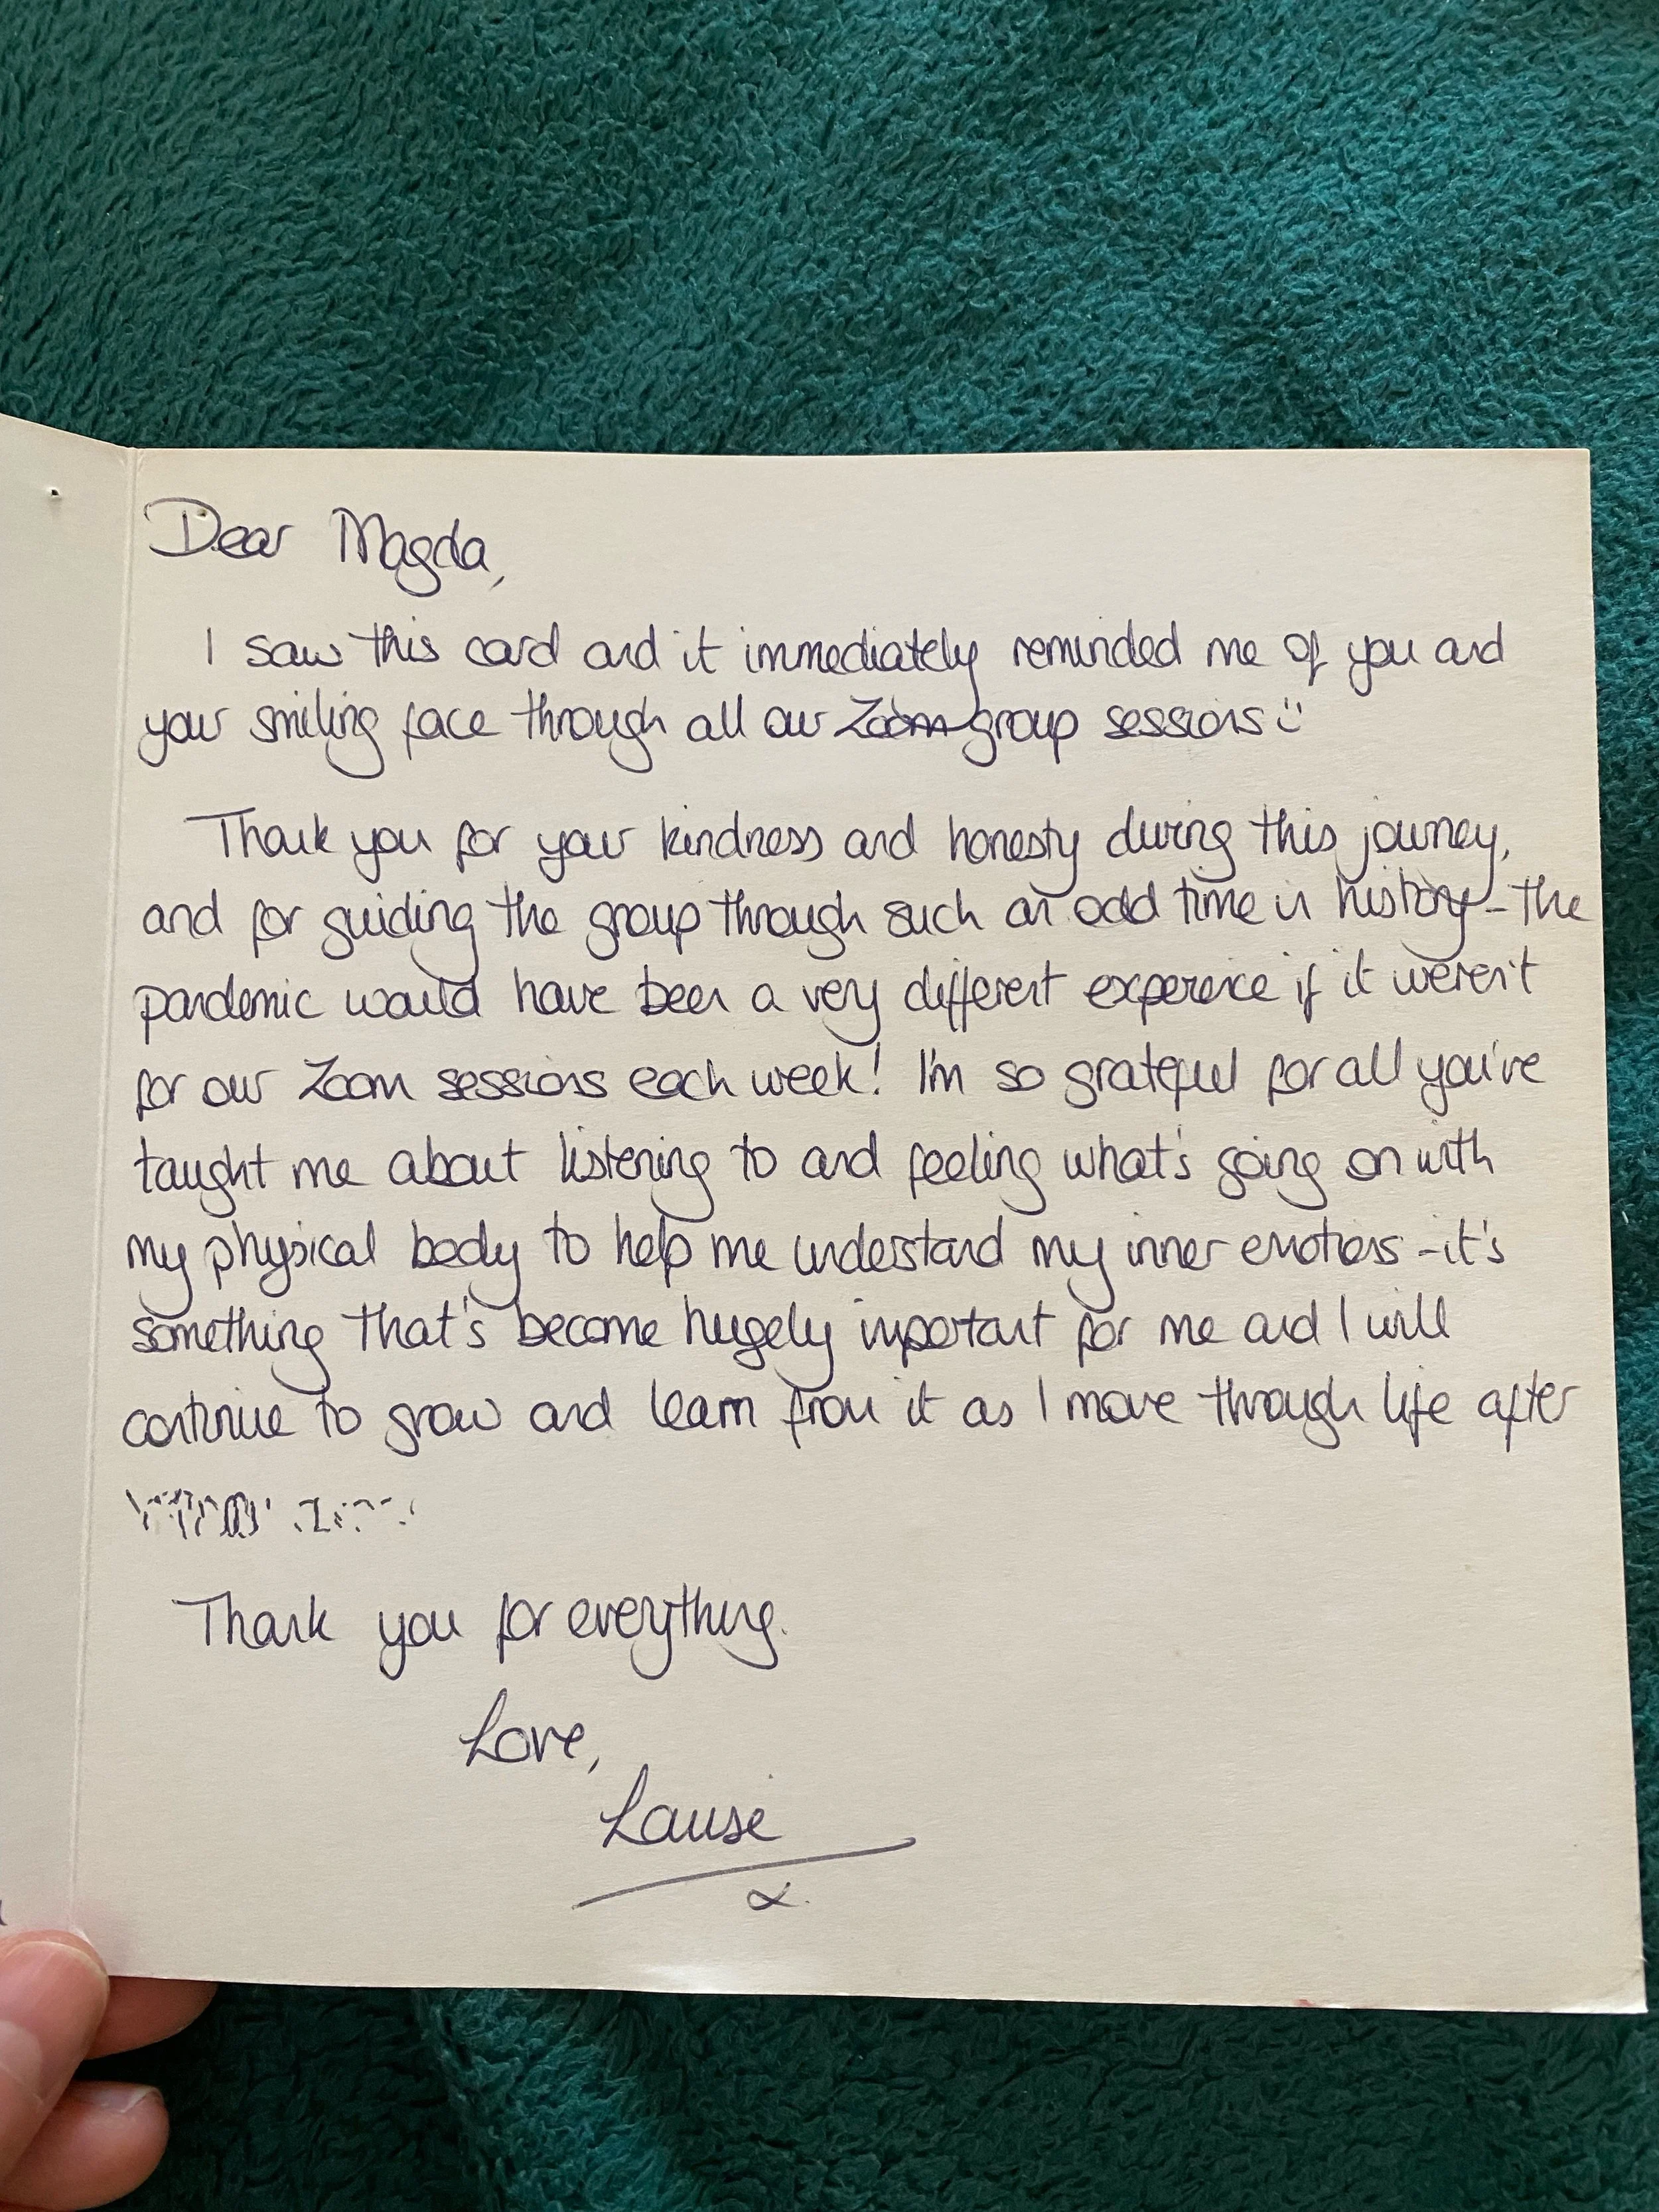 Dear Magda,
I saw this card and it immediately reminded me of you and
your smiling face through all our Zoom group sessions
Thank you for your kindness and honesty during this journey,
and for guiding the group through such an odd time in history - the
pandemic would have been a very different experience if it weren't
for our Zoom sessions each week! I'm so grateful for all you've
taught me about listening to and feeling what's going on with
my physical body to help me understand my inner emotions - it's
something that's become hugely important for me and I will
continue to grow and learn from it as I move through life after
Thank you for everything.
Love,
x